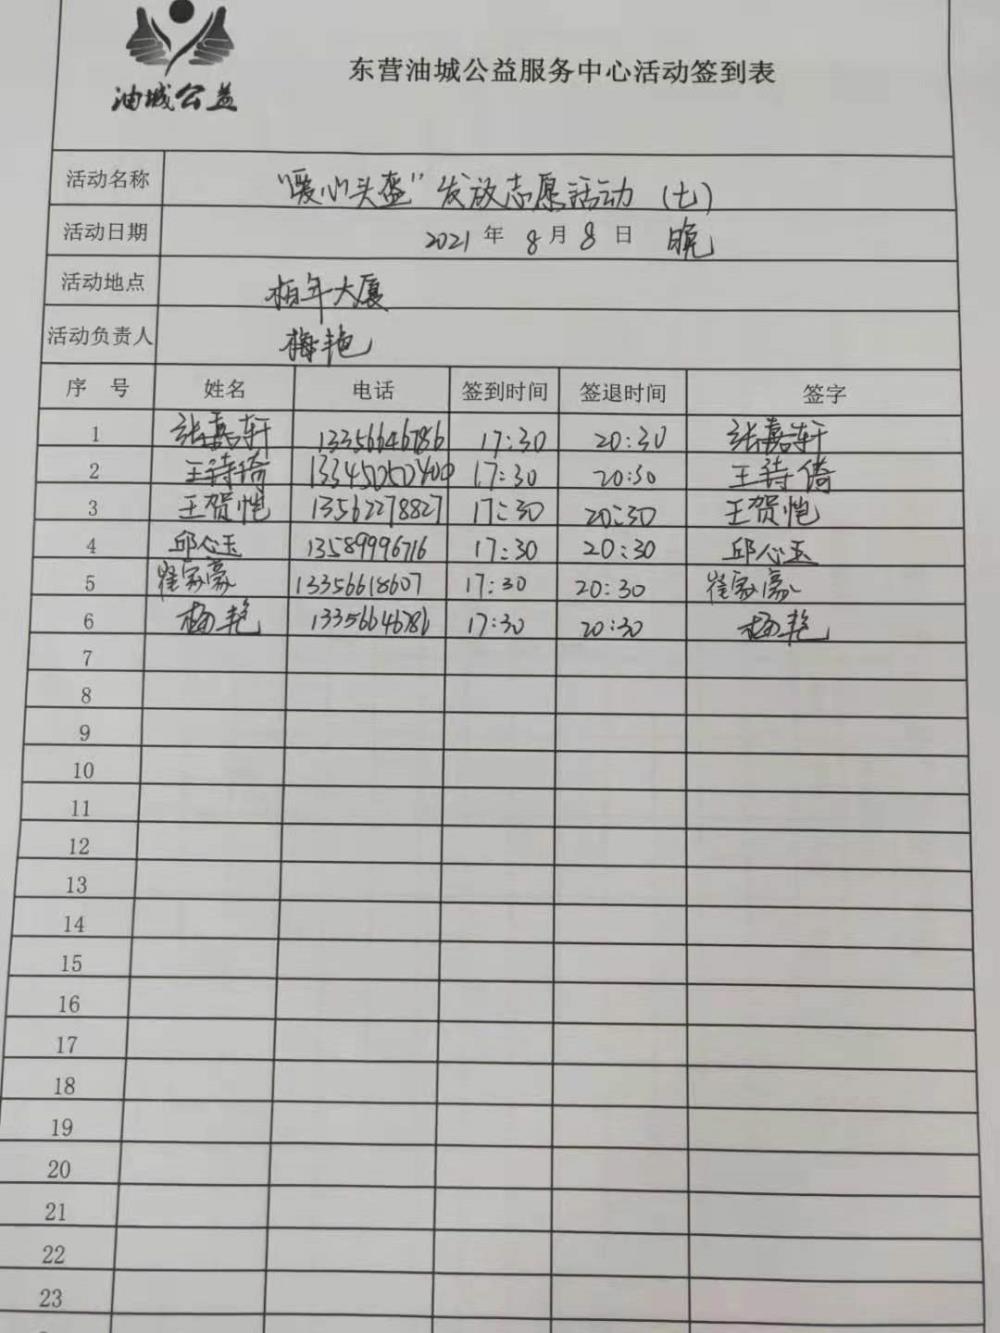 油城公益
东营油城公益服务中心活动签到表
活动名称 “暖心头盔”发放志愿活动（七）
活动日期 2021年8月8日 晚
活动地点 柏年大厦
活动负责人 梅艳
序 号 姓名 电话 签到时间 签退时间 签字
1 张嘉轩 13356646786 17:30 20:30 张嘉轩
2 王诗倚 17:30 20:30 王诗倚
3 王贺恺 13562278827 17:30 20:30 王贺恺
4 邱心玉 13589996716 17:30 20:30 邱心玉
5 崔家豪 13356618607 17:30 20:30 崔家豪
6 梅艳 13356646786 17:30 20:30 梅艳
7
8
9
10
11
12
13
14
15
16
17
18
19
20
21
22
23